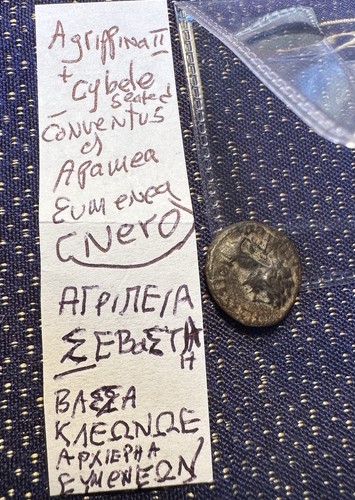 Agrippina II
+ Cybele
seated
Conventus
of
Apamea
Eumenea
(Nero)
ΑΓΡΙΠΕΙΑ
ΣΕΒΑΣΤΗ
Η
ΒΑΣΣΑ
ΚΛΕΩΝΩΣ
ΑΡΧΙΕΡΗΑ
ΕΥΜΕΝΕΩΝ